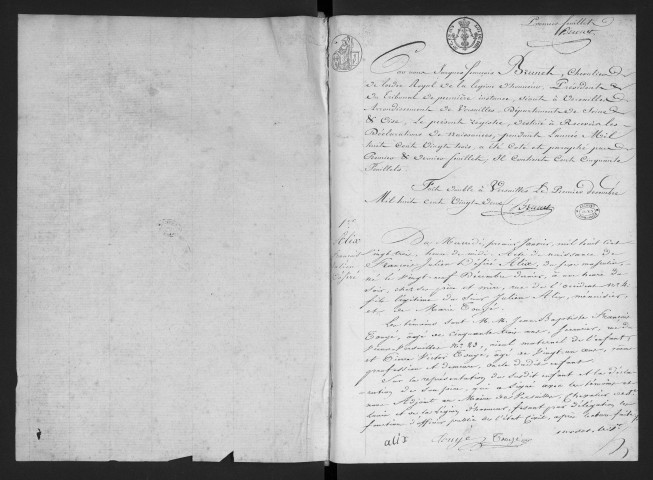 Premier feuillet
Brunet
Par nous Jacques françois Brunet, Chevalier
de l'ordre Royal de la légion d'honneur, Président
du tribunal de première instance, séante à Versailles
Arrondissement de Versailles, Département de Seine
& Oise, Le présent registre, destiné à Recevoir les
Déclarations de naissances, pendant l'année Mil
huit Cent Vingt trois, a été Coté et paraphé par
Premier & dernier feuillet, Il Contient Cent Cinquante
feuillets.
Fait double à Versailles Le Premier décembre
Mil huit cent Vingt deux
Brunet
1er
Alix
françois
Julien
Désiré
Du Mercredi premier Janvier, mil huit cent
vingt trois, heure de midi, Acte de naissance de
François Julien Désiré Alix, du sexe masculin,
né le vingt neuf Décembre dernier, à onze heures du
soir, chez ses père et mère, rue de l'occident No 4
fils légitime de Sieur Julien Alix, menuisier,
et de Marie Tougé.
Les témoins sont M.M. Jean Baptiste François
Tougé, âgé de cinquante trois ans, Jardinier, rue du
Vieux Versailles No 23, aïeul maternel de l'enfant,
et Pierre Victor Tougé, âgé de vingt un ans, même
profession et demeure, oncle dudit enfant
Sur la représentation du susdit enfant et la décla-
ration de son père, qui a signé avec les témoins et
nous Adjoint au Maire de Versailles Chevalier
de la légion d'honneur, faisant par délégation les
fonctions d'officier public de l'état Civil, après lecture faite
alix Tougé Tougé